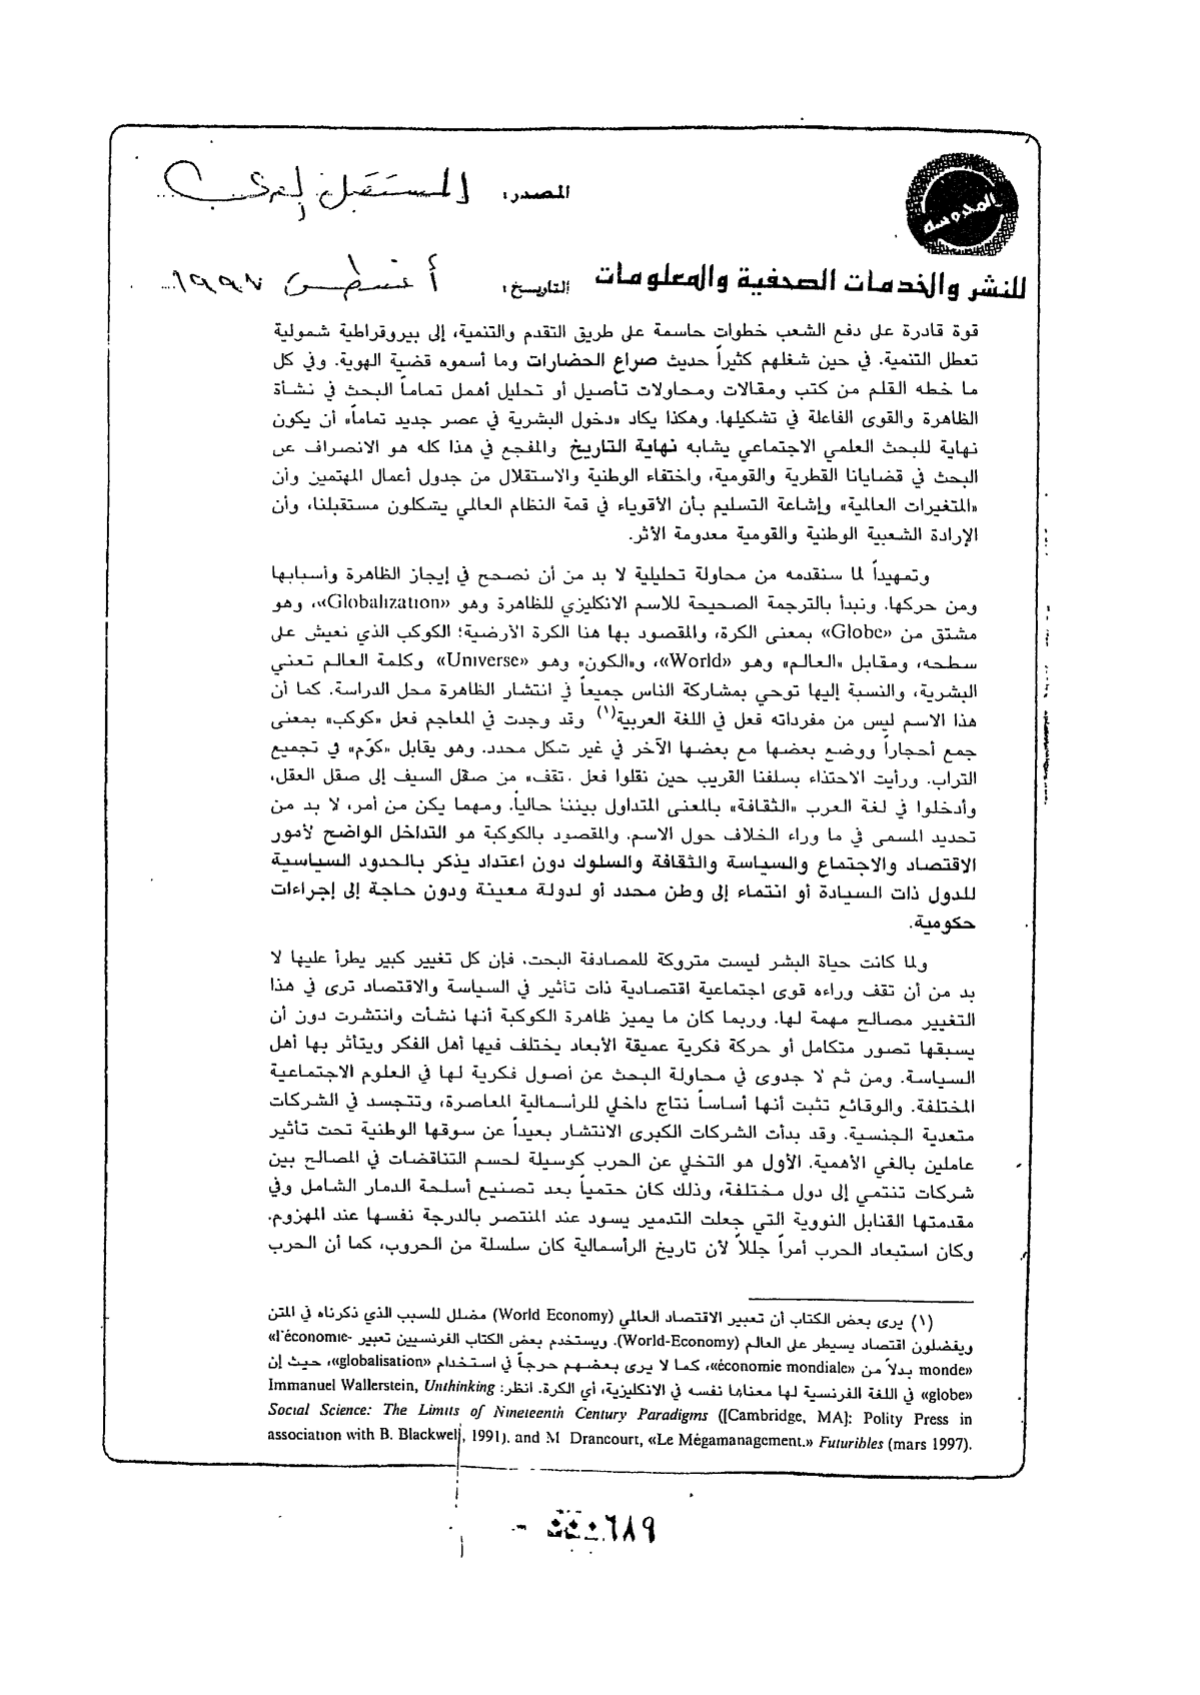 المدوسة
المصدر: المستقبل العربي
للنشر والخدمات الصحفية والمعلومات
التاريخ: أغسطس ١٩٩٧
قوة قادرة على دفع الشعب خطوات حاسمة على طريق التقدم والتنمية، إلى بيروقراطية شمولية
تعطل التنمية. في حين شغلهم كثيراً حديث صراع الحضارات وما أسموه قضية الهوية. وفي كل
ما خطه القلم من كتب ومقالات ومحاولات تأصيل أو تحليل أهمل تماماً البحث في نشأة
الظاهرة والقوى الفاعلة في تشكيلها. وهكذا يكاد «دخول البشرية في عصر جديد تماماً» أن يكون
نهاية للبحث العلمي الاجتماعي يشابه نهاية التاريخ والمفجع في هذا كله هو الانصراف عن
البحث في قضايانا القطرية والقومية، واختفاء الوطنية والاستقلال من جدول أعمال المهتمين وأن
«المتغيرات العالمية» وإشاعة التسليم بأن الأقوياء في قمة النظام العالمي يشكلون مستقبلنا، وأن
الإرادة الشعبية الوطنية والقومية معدومة الأثر.
وتمهيداً لما سنقدمه من محاولة تحليلية لا بد من أن نصحح في إيجاز الظاهرة وأسبابها
ومن حركها. ونبدأ بالترجمة الصحيحة للاسم الانكليزي للظاهرة وهو «Globalization»، وهو
مشتق من «Globe» بمعنى الكرة، والمقصود بها هنا الكرة الأرضية؛ الكوكب الذي نعيش على
سطحه، ومقابل «العالم» وهو «World»، و«الكون» وهو «Universe» وكلمة العالم تعني
البشرية، والنسبة إليها توحي بمشاركة الناس جميعاً في انتشار الظاهرة محل الدراسة. كما أن
هذا الاسم ليس من مفرداته فعل في اللغة العربية(١) وقد وجدت في المعاجم فعل «كوكب» بمعنى
جمع أحجاراً ووضع بعضها مع بعضها الآخر في غير شكل محدد. وهو يقابل «كوّم» في تجميع
التراب. ورأيت الاحتذاء بسلفنا القريب حين نقلوا فعل «ثقف» من صقل السيف إلى صقل العقل،
وأدخلوا في لغة العرب «الثقافة» بالمعنى المتداول بيننا حالياً. ومهما يكن من أمر، لا بد من
تحديد المسمى في ما وراء الخلاف حول الاسم. والمقصود بالكوكبة هو التداخل الواضح لأمور
الاقتصاد والاجتماع والسياسة والثقافة والسلوك دون اعتداد يذكر بالحدود السياسية
للدول ذات السيادة أو انتماء إلى وطن محدد أو لدولة معينة ودون حاجة إلى إجراءات
حكومية.
ولما كانت حياة البشر ليست متروكة للمصادفة البحت، فإن كل تغيير كبير يطرأ عليها لا
بد من أن تقف وراءه قوى اجتماعية اقتصادية ذات تأثير في السياسة والاقتصاد ترى في هذا
التغيير مصالح مهمة لها. وربما كان ما يميز ظاهرة الكوكبة أنها نشأت وانتشرت دون أن
يسبقها تصور متكامل أو حركة فكرية عميقة الأبعاد يختلف فيها أهل الفكر ويتأثر بها أهل
السياسة. ومن ثم لا جدوى في محاولة البحث عن أصول فكرية لها في العلوم الاجتماعية
المختلفة. والوقائع تثبت أنها أساساً نتاج داخلي للرأسمالية المعاصرة، وتتجسد في الشركات
متعدية الجنسية. وقد بدأت الشركات الكبرى الانتشار بعيداً عن سوقها الوطنية تحت تأثير
عاملين بالغي الأهمية. الأول هو التخلي عن الحرب كوسيلة لحسم التناقضات في المصالح بين
شركات تنتمي إلى دول مختلفة، وذلك كان حتمياً بعد تصنيع أسلحة الدمار الشامل وفي
مقدمتها القنابل النووية التي جعلت التدمير يسود عند المنتصر بالدرجة نفسها عند المهزوم.
وكان استبعاد الحرب أمراً جللاً لأن تاريخ الرأسمالية كان سلسلة من الحروب، كما أن الحرب
(١) يرى بعض الكتاب أن تعبير الاقتصاد العالمي (World Economy) مضلل للسبب الذي ذكرناه في المتن
ويفضلون اقتصاد يسيطر على العالم (World-Economy). ويستخدم بعض الكتاب الفرنسيين تعبير «l'économie-
monde» بدلاً من «économie mondiale»، كما لا يرى بعضهم حرجاً في استخدام «globalisation»، حيث إن
«globe» في اللغة الفرنسية لها معناها نفسه في الانكليزية، أي الكرة. انظر: Immanuel Wallerstein, Unthinking
Social Science: The Limits of Nineteenth Century Paradigms ([Cambridge, MA]: Polity Press in
association with B. Blackwell, 1991). and M Drancourt, «Le Mégamanagement.» Futuribles (mars 1997).
٦٨٩